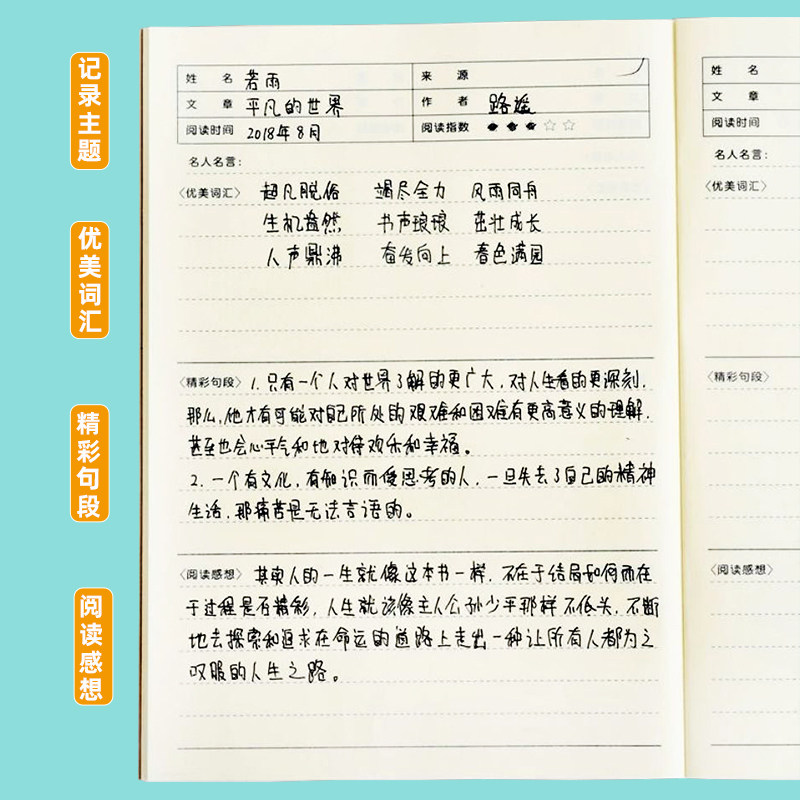 记录主题
优美词汇
精彩句段
阅读感想
姓 名 若雨 来 源
文 章 平凡的世界 作 者 路遥
阅读时间 2018年8月 阅读指数
名人名言：
〈优美词汇〉 超凡脱俗 竭尽全力 风雨同舟
生机盎然 书声琅琅 茁壮成长
人声鼎沸 奋发向上 春色满园
〈精彩句段〉 1.只有一个人对世界了解的更广大，对人生看的更深刻，
那么，他才有可能对自己所处的艰难和困难有更高意义的理解，
甚至也会心平气和地对待欢乐和幸福。
2.一个有文化，有知识而使思考的人，一旦失去了自己的精神
生活，那痛苦是无法言语的。
〈阅读感想〉 其实人的一生就像这本书一样，不在于结局如何而在
于过程是否精彩，人生就该像主人公孙少平那样不低头，不断
地去探索和追求在命运的道路上走出一种让所有人都为之
叹服的人生之路。
姓 名
文 章
阅读时间
名人名言：
〈优美词汇〉
〈精彩句段〉
〈阅读感想〉